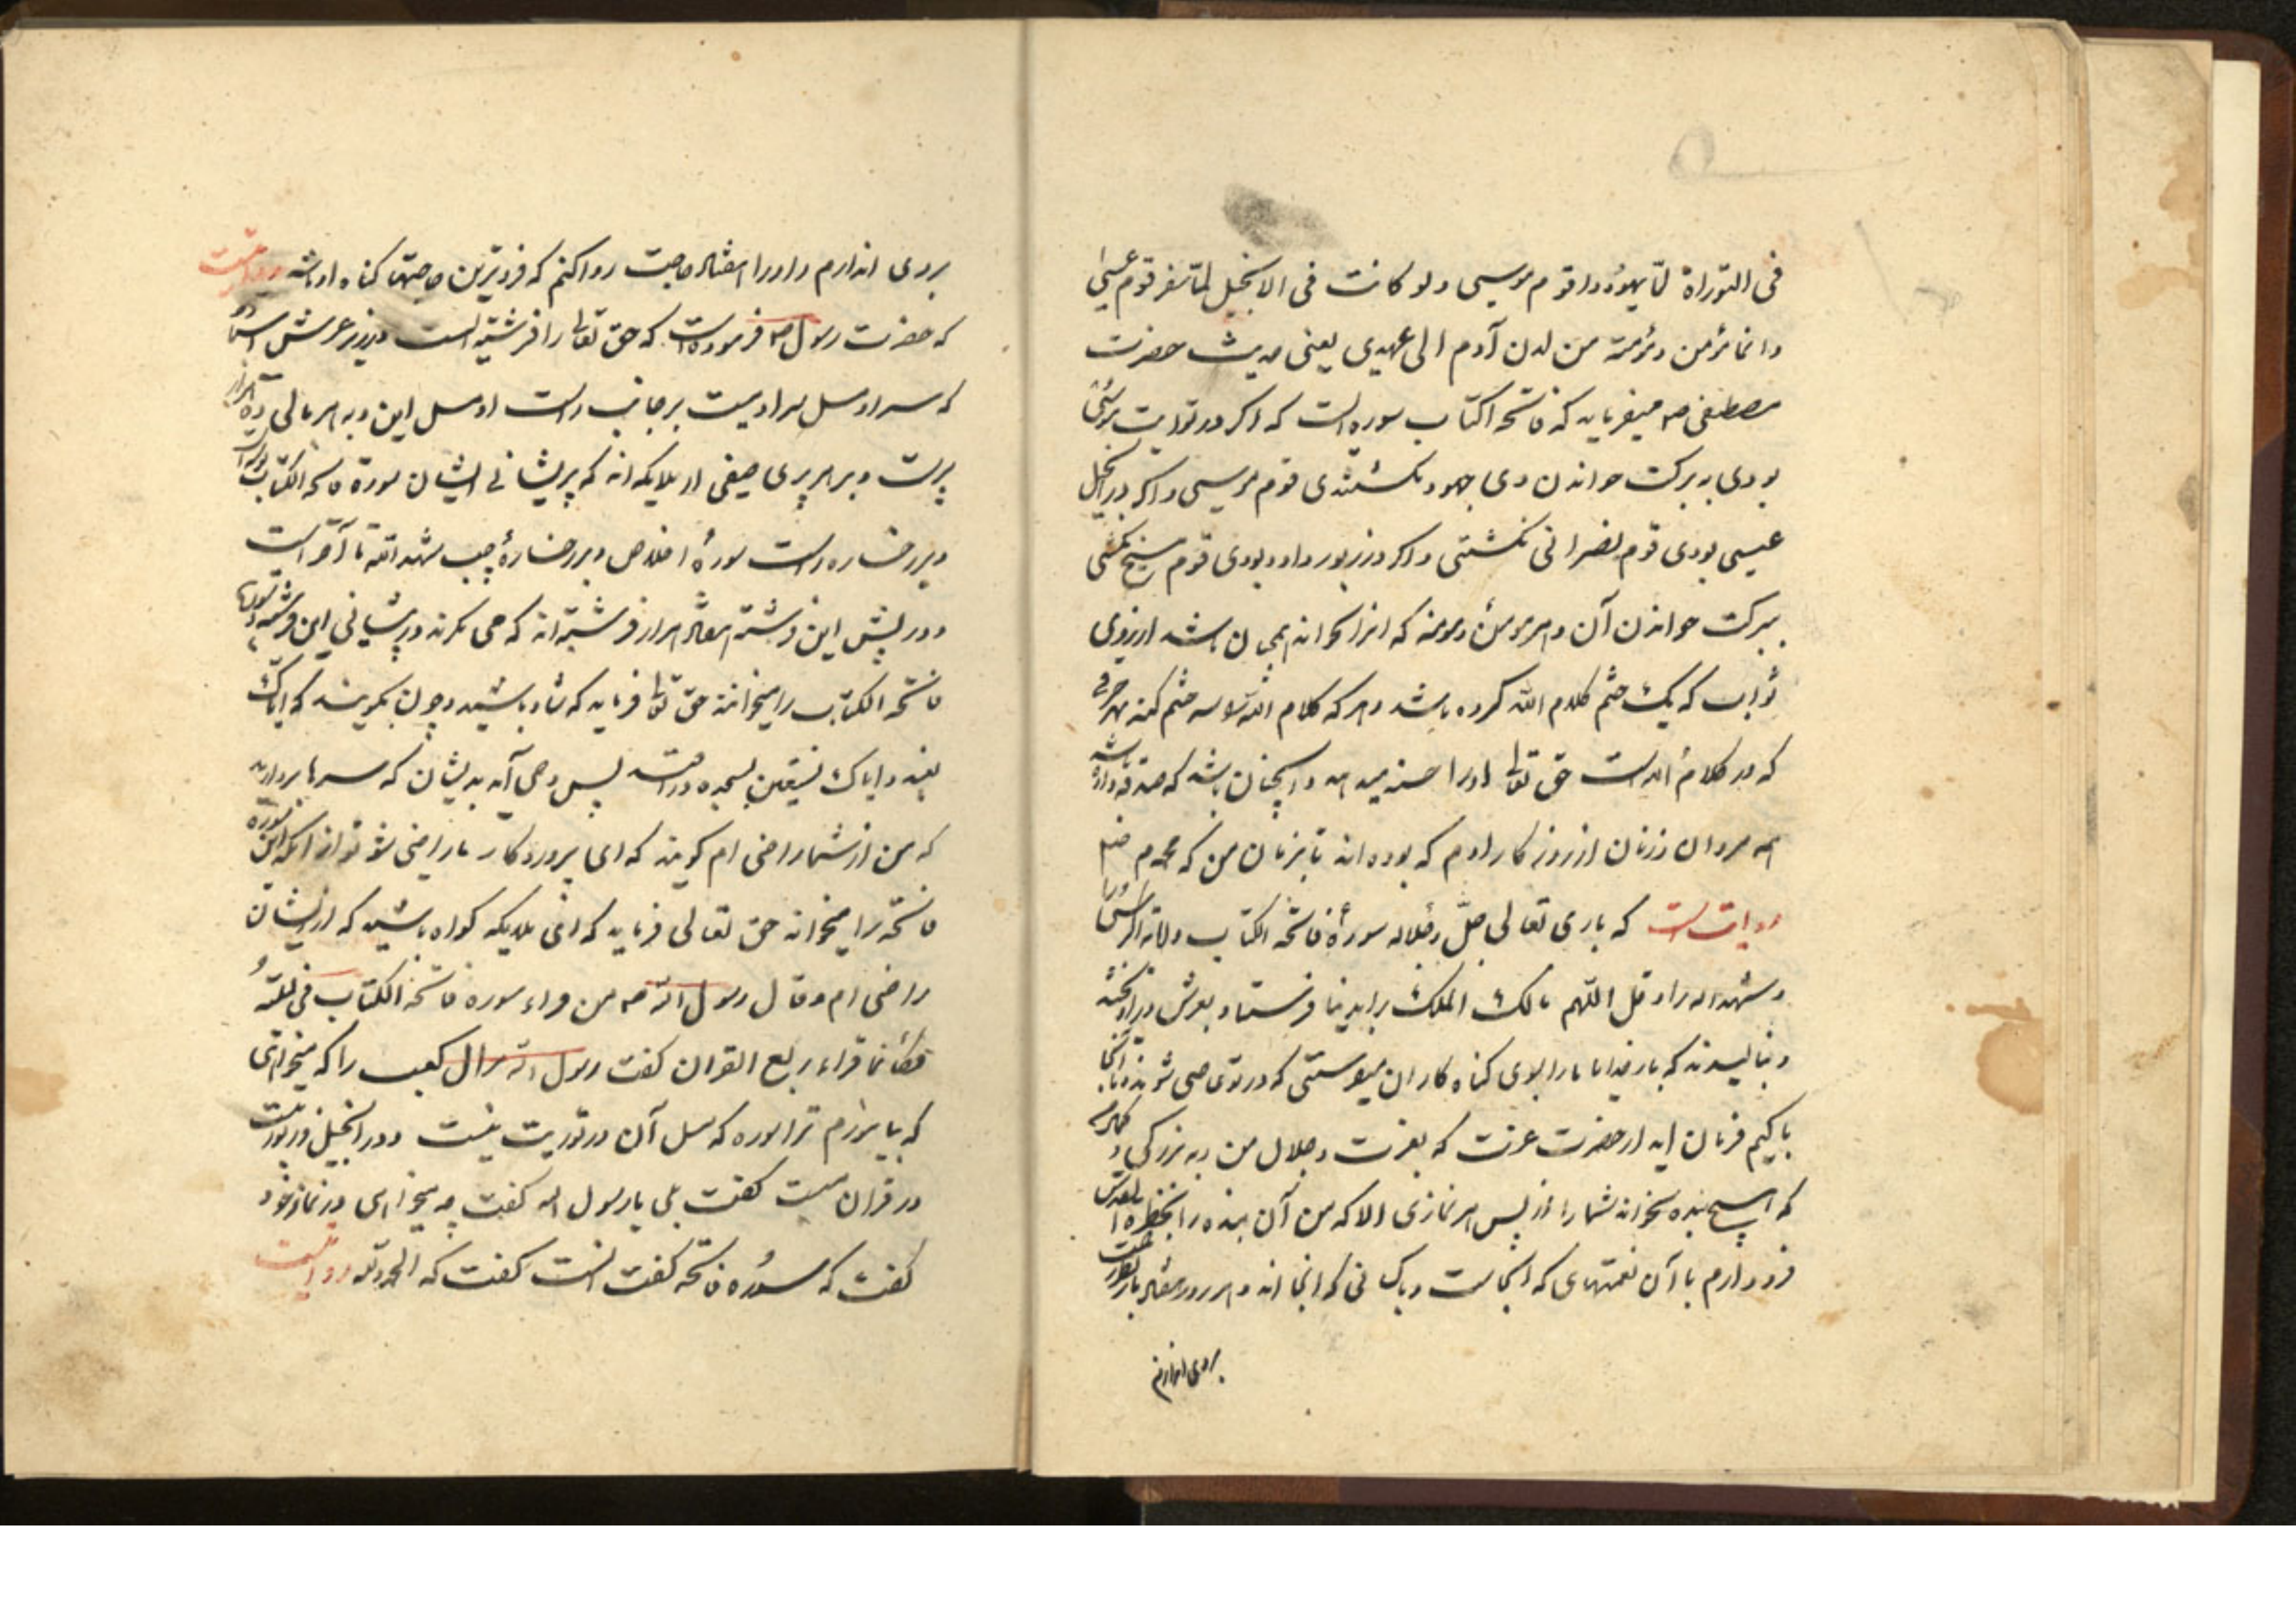 فی التوراة لما یهود قوم موسی ولو کانت فی الانجیل لما تنصر قوم عیسی
وانما مؤمن ومؤمنة من لدن آدم الی عهدی یعنی حدیث حضرت
مصطفی صم میفرماید که فاتحه الکتاب سوره است که اکر در توریت موسی
بودی به برکت خواندن وی جهود نکشتندی قوم موسی و اکر در انجیل
عیسی بودی قوم نصرانی نکشتی و اکر در زبور داود بودی قوم مسخ نکشتی
ببرکت خواندن آن و هر مومن و مومنه که انرا بخواند همچنان باشد از روی
ثواب که یک ختم کلام الله کرده باشد و هر که کلام الله را سه ختم کند هر حرفی
که در کلام الله است حق تعالی اورا حسنه میدهد و انچنان باشد که صدقه داده باشد
همه مردان و زنان از روزکار ادم که بوده اند تا بزمان من که محمدم صم
روایت است که باری تعالی جل وجلاله سورهٔ فاتحة الکتاب و آیة الکرسی را
و شهد الله را و قل اللهم مالک الملک را بدنیا فرستاد بعرش در آویختند
و بنالیدند که بار خدایا ما را بسوی کناه کاران میفرستی که در تو عاصی شوند و ما انجا
پاکیم فرمان اید از حضرت عزت که بعزت و جلال من و به بزرکی و کمال من
که هیچ بنده نخواند شما را از پس هر نمازی الا که من آن بنده را بحظیره القدس
فرود ارم با آن نعمتهای که انجاست و پاکانی که انجا اند و هر روز هفتاد بار نظر رحمت
بروی اندازم
بروی اندازم و اورا هفتاد حاجت روا کنم که فروترین حاجتها کناه او باشد روایتست
که حضرت رسول صم فرموده است که حق تعالی را فرشته است در زیر عرش
که سر او بر جانب راست او و به هر بالی ده هزار
پر است و بر هر پری صفی از ملایکه اند که بر پیشانی ایشان سورة فاتحه الکتاب نوشته است
و بر رخساره راست سورهٔ اخلاص و بر رخسارهٔ چپ شهد الله تا آخر است
و در پیش این فرشته هفتاد هزار فرشته اند که می نکرند در پیشانی این فرشته و سوره
فاتحه الکتاب را میخوانند حق تعالی فرماید که شاد باشید و چون بکویند که ایاک
نعبد و ایاک نستعین بسجده در افتند پس وحی آید بدیشان که سرها بردارید
که من از شما راضی ام کویند که ای پروردکار ما راضی شو تو از انکه این سوره
فاتحه را میخواند حق تعالی فرماید که ای ملایکه کواه باشید که از ایشان
راضی ام و قال رسول الله صم من قراء سوره فاتحة الکتاب فی لیلة
فکأنما قراء ربع القران کفت رسول الله مر ال کعب را که میخواهی
که بیاموزم ترا سوره که مثل آن در توریت نیست و در انجیل و زبور نیست
در قران نیست کفت بلی یا رسول الله کفت چه میخوانی در نماز خود
کفت که سوره فاتحه کفت انست کفت که الحمد لله روایتست